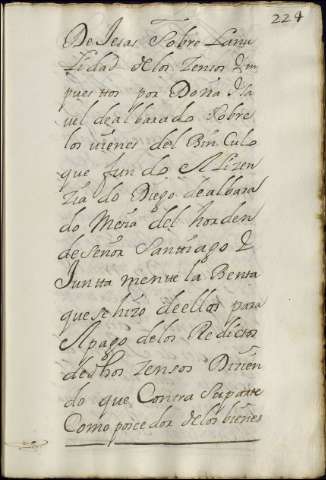 224
De Jesas Sobre Lanu
lidad de los Zensos Ym
puesttos por Doña Ysa
uel de albarado Sobre
los vienes del Binculo
que fundo el lizen
ziado Diego de albara
do Mesia del horden
de Señor Santtiago Y
Juntta mentte la Benta
que se hizo de ellos para
el pago de los Reditos
deshos Zensos Dizien
do que Contra Su partte
Como posedor de los bienes